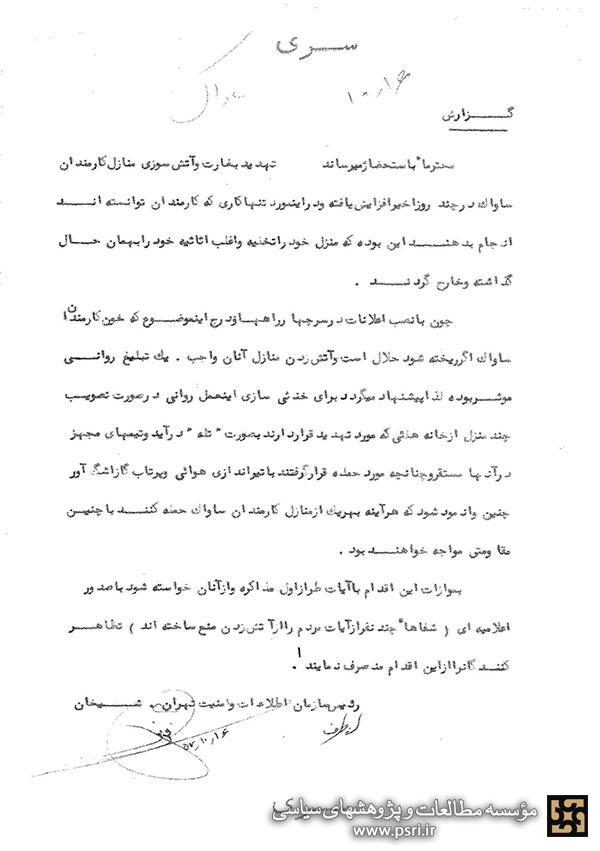 سری
ساواک
۱۰٫۱۶
گزارش
محترماً باستحضار میرساند تهدید بغارت و آتش سوزی منازل کارمندان
ساواک در چند روز اخیر افزایش یافته و در اینمورد تنها کاری که کارمندان توانسته اند
انجام بدهند این بوده که منزل خود را تخلیه و اغلب اثاثیه خود را بهمان حال
گذاشته و خارج گردند .
چون با نصب اعلانات در سرچها رراهها و درج اینموضوع که خون کارمندان
ساواک اگر ریخته شود حلال است و آتش زدن منازل آنان واجب . یک تبلیغ روانی
موثر بوده لذا پیشنهاد میگردد برای خنثی سازی اینعمل روانی در صورت تصویب
چند منزل از خانه هائی که مورد تهدید قرار دارند بصورت " تله " درآید و تیمهای مجهز
در آنها مستقر و چنانچه مورد حمله قرار گرفتند با تیراندازی هوائی و پرتاب گاز اشگ آور
چنین وانمود شود که هرآینه بهریک از منازل کارمندان ساواک حمله کنند با چنین
مقاومتی مواجه خواهند بود .
بموازات این اقدام با آیات طراز اول مذاکره و از آنان خواسته شود با صدور
اعلامیه ای ( شفاهاً چند نفر از آیات مردم را از آتش زدن منع ساخته اند ) تظاهر
کنندگان را از این اقدام منصرف نمایند .
رئیس سازمان اطلاعات و امنیت تهران . شیخان
از طرف
۵۷٫۱۰٫۱۶
سری
مؤسسه مطالعات و پژوهشهای سیاسی
www.psri.ir